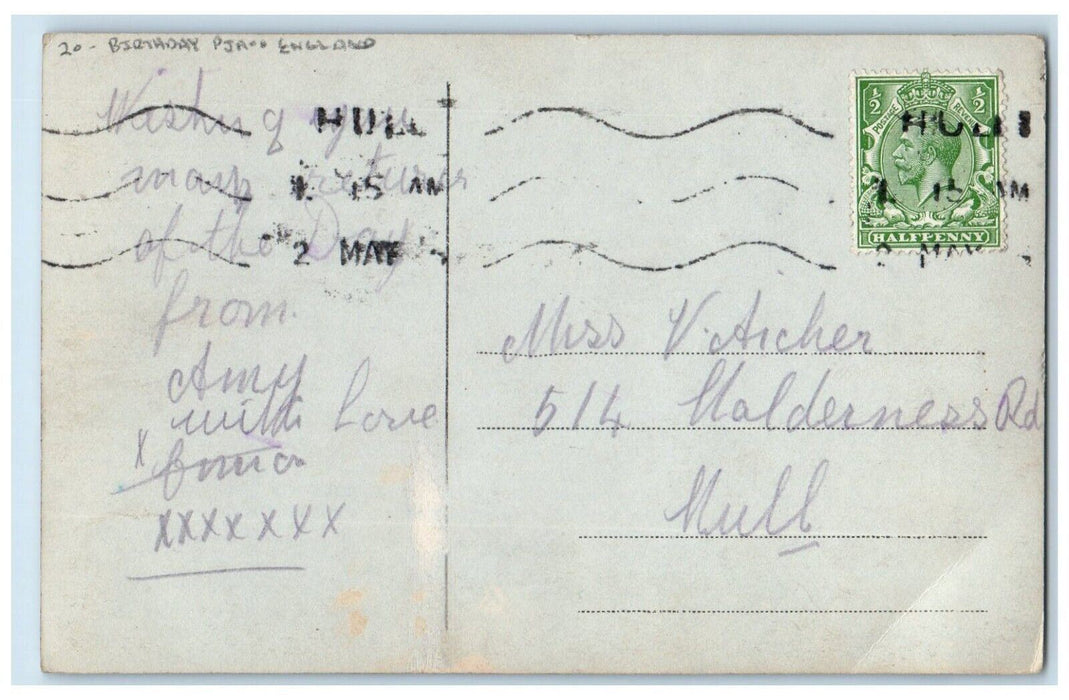 20- BIRTHDAY ENGLAND
Wishing you
many returns
of the Day
from
Amy
with Love
x
xxxxxxx
HULL
1. 15 AM
2 MAY
½ ½
POSTAGE REVENUE
HALFPENNY
HULL
1. 15 AM
MAY
Miss V. Archer
514 Holderness Rd
Hull